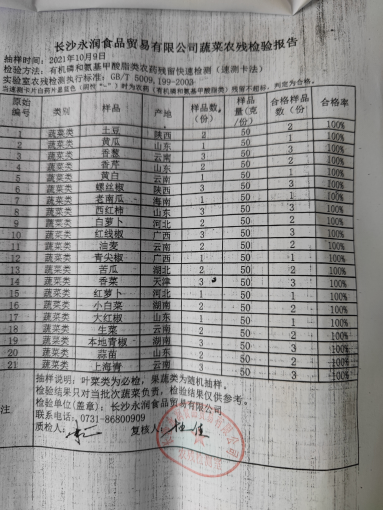 长沙永润食品贸易有限公司蔬菜农残检验报告
抽样时间：2021年10月9日
检验方法：有机磷和氨基甲酸脂类农药残留快速检测（速测卡法）
实验室农残检测执行标准：GB/T 5009.199-2003
当速测卡片白药片显蓝色（阴性“-”）时为农药（有机磷和氨基甲酸脂类）残留不超标，判定为合格。
原始编号 类别 样品 产地 样品数（份） 样品量（克/份） 合格样品数（份） 合格率
1 蔬菜类 土豆 陕西 2 50 2 100%
2 蔬菜类 黄瓜 山东 1 50 1 100%
3 蔬菜类 香葱 云南 3 50 3 100%
4 蔬菜类 香芹 山东 2 50 2 100%
5 蔬菜类 黄白 云南 1 50 1 100%
6 蔬菜类 螺丝椒 陕西 3 50 3 100%
7 蔬菜类 老南瓜 海南 1 50 1 100%
8 蔬菜类 西红柿 山东 3 50 3 100%
9 蔬菜类 白萝卜 河北 2 50 2 100%
10 蔬菜类 红线椒 广西 3 50 3 100%
11 蔬菜类 油麦 云南 2 50 2 100%
12 蔬菜类 青尖椒 广西 1 50 1 100%
13 蔬菜类 苦瓜 湖北 2 50 2 100%
14 蔬菜类 香菜 天津 3 50 3 100%
15 蔬菜类 红萝卜 河北 1 50 1 100%
16 蔬菜类 小白菜 湖南 2 50 2 100%
17 蔬菜类 大红椒 山东 1 50 1 100%
18 蔬菜类 生菜 云南 2 50 2 100%
19 蔬菜类 本地青椒 湖南 3 50 3 100%
20 蔬菜类 蒜苗 山东 2 50 2 100%
21 蔬菜类 上海青 云南 3 50 3 100%
注 抽样说明：叶菜类为必检，果蔬类为随机抽样。
检验结果只对当批次蔬菜负责，检验结果仅供参考。
检验单位(盖章)：长沙永润食品贸易有限公司
联系电话：0731-86800909
质检人： 复核人：